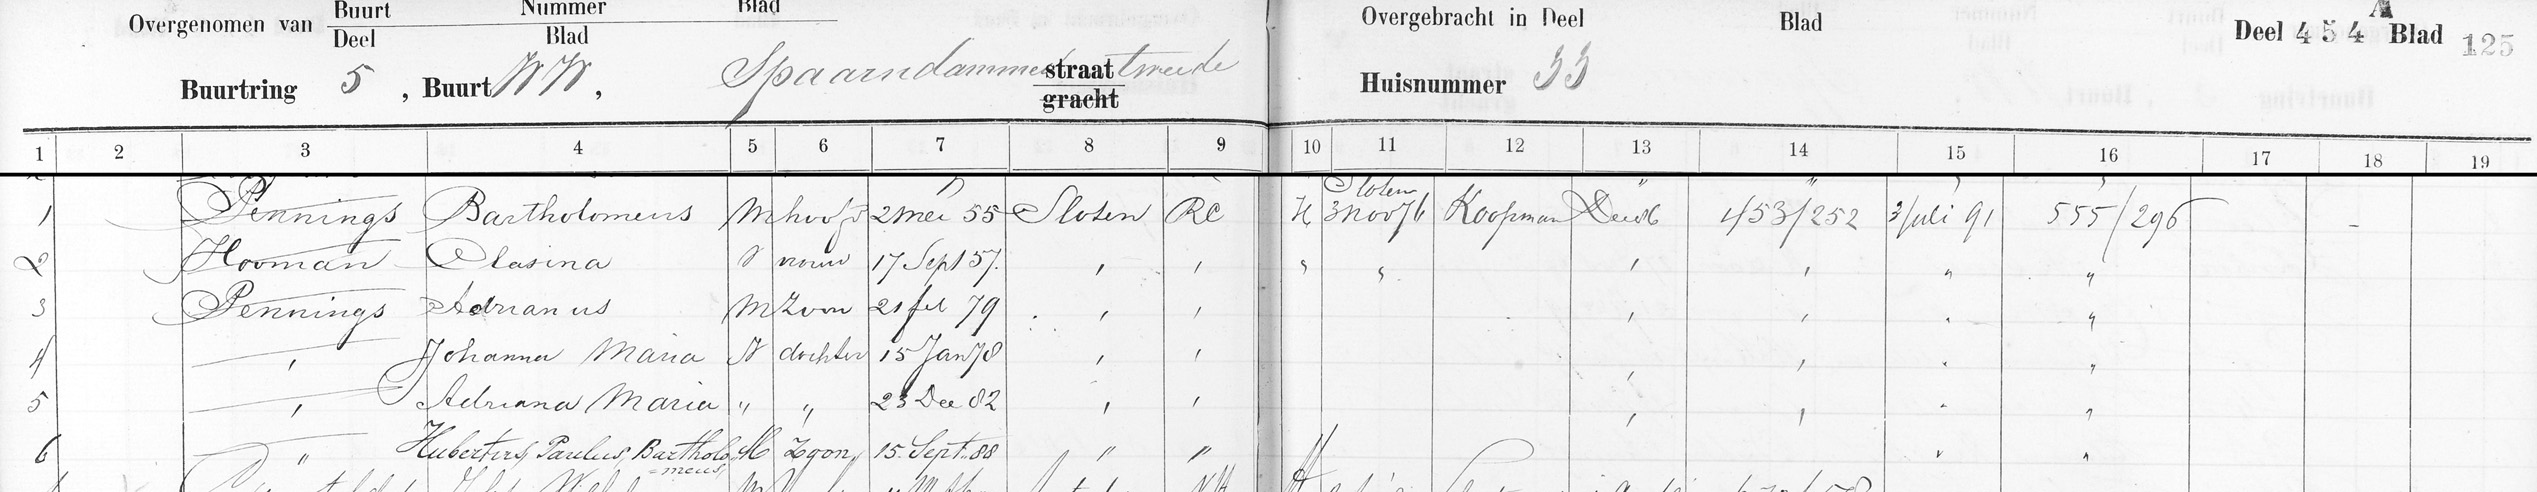 Overgenomen van Buurt Nummer Blad
Deel Blad
Overgebracht in Deel Blad Deel 454 A Blad 125
Buurtring 5, Buurt WW, Spaarndammer straat tweede
gracht
Huisnummer 33
1 2 3 4 5 6 7 8 9 10 11 12 13 14 15 16 17 18 19
Sloten
1 Pennings Bartholomeus M hoofd 2 mei 55 Sloten RC H 3 Nov 76 Koopman 453/252 3 Juli 91 555/296 -
2 Hooman Clasina V vrouw 17 Sept 57. " " " " " " " "
3 Pennings Adrianus M Zoon 21 feb 79 " " " " " "
4 " Johanna Maria V dochter 15 Jan 78 " " " " " "
5 " Adriana Maria " " 23 Dec 82 " " " " " "
6 " Hubertus, Paulus, Bartholo M Zoon, 15. Sept. 88 " " " "
=meus,